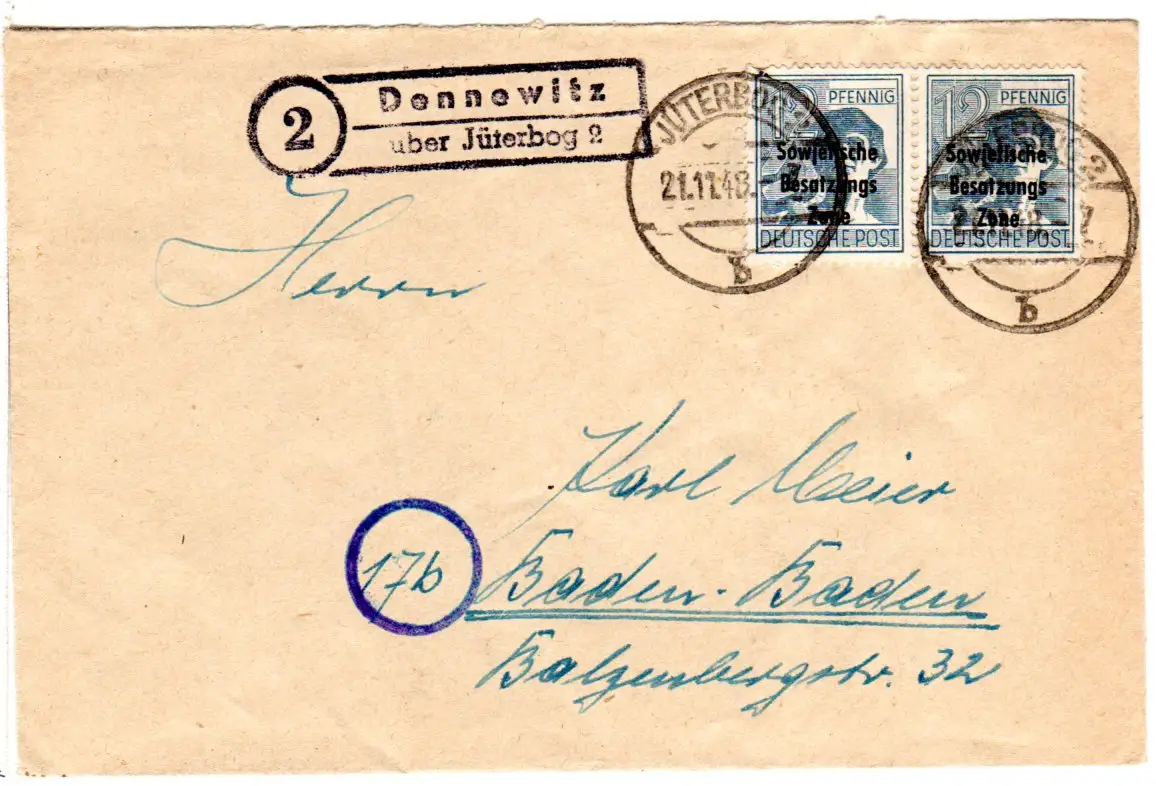 2
Dennewitz
über Jüterbog 2
JÜTERBOG 2
21.11.48.-7
b
12 PFENNIG
Sowjetische
Besatzungs
Zone
DEUTSCHE POST
12 PFENNIG
Sowjetische
Besatzungs
Zone
DEUTSCHE POST
b
Herrn
Karl Meier
17b
Baden-Baden
Balzenbergstr. 32